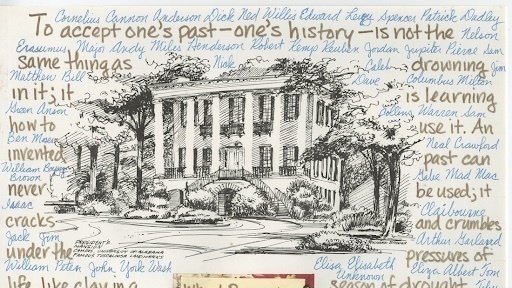 Cornelius Cannon Anderson Dick Ned Willis Edward Spencer Patrick Dudley
To accept one's past—one's history—is not the
Nelson
Erasmus Major Andy Miles Henderson Robert Kemp Reuben Jordan Jupiter Pierce Sam
same thing as Nick Caleb drowning Jim
Matthew Bell Dave Columbus Milton
in it; it is learning
Green Anson Collins Warren Sam
how to use it. An
Ben Moses Neal Crawford
invented past can
William Brown Mad Mac
never be used; it
Isaac Claibourne
cracks and crumbles
Jack Jim Arthur Garland
under the PRESIDENT'S MANSION pressures of
CAMPUS UNIVERSITY OF ALABAMA
FAMOUS TUSCALOOSA LANDMARKS
William Peter John York Wash Eliza Elisabeth Eliza Albert Tom
Unknown
life, like clay in a season of drought